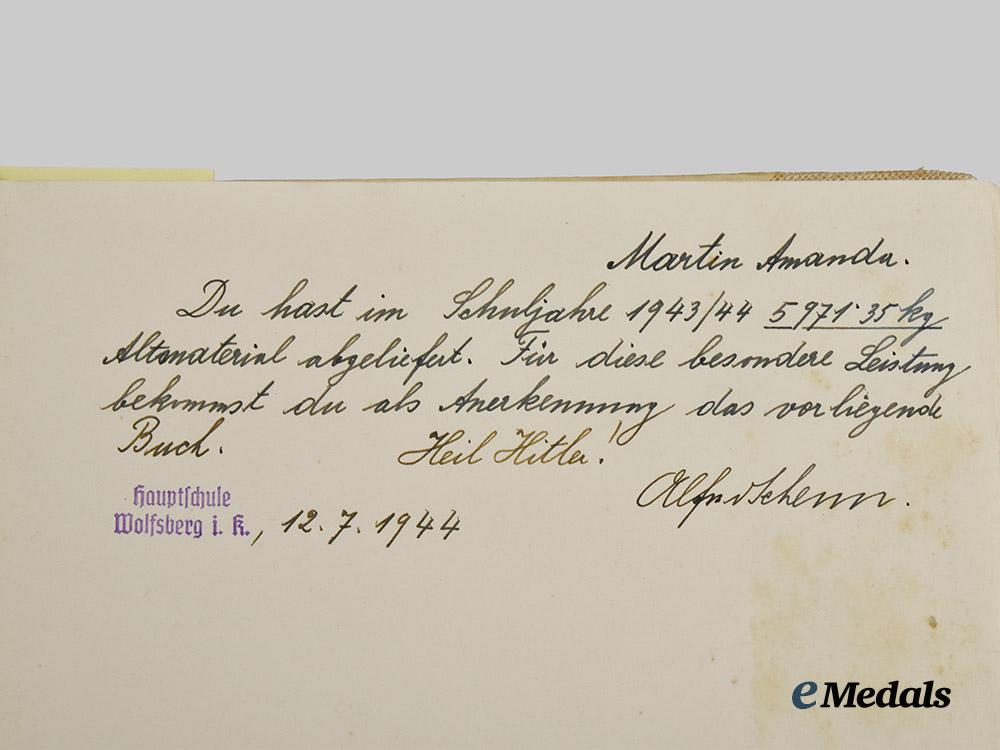 Martin Amanda.
Du hast im Schuljahre 1943/44 5971·35 kg
Altmaterial abgeliefert. Für diese besondere Leistung
bekommst du als Anerkennung das vorliegende
Buch. Heil Hitler!
Hauptschule
Wolfsberg i. K., 12.7.1944
eMedals